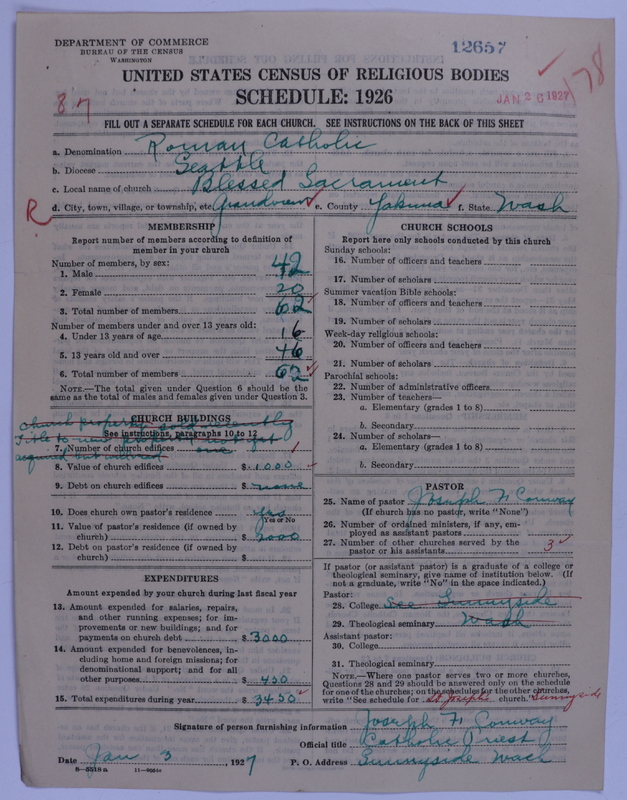 DEPARTMENT OF COMMERCE
BUREAU OF THE CENSUS
WASHINGTON
12657
178
UNITED STATES CENSUS OF RELIGIOUS BODIES
SCHEDULE: 1926
87
JAN 26 1927
FILL OUT A SEPARATE SCHEDULE FOR EACH CHURCH. SEE INSTRUCTIONS ON THE BACK OF THIS SHEET
a. Denomination Roman Catholic
b. Diocese Seattle
c. Local name of church Blessed Sacrament
R d. City, town, village, or township, etc. Grandview e. County Yakima f. State Wash
MEMBERSHIP
Report number of members according to definition of
member in your church
Number of members, by sex:
1. Male 42
2. Female 20
3. Total number of members 62
Number of members under and over 13 years old:
4. Under 13 years of age 16
5. 13 years old and over 46
6. Total number of members 62
NOTE.—The total given under Question 6 should be the
same as the total of males and females given under Question 3.
CHURCH BUILDINGS
church property sold recently
See instructions, paragraphs 10 to 12
Title to new property not yet
7. Number of church edifices one 1
acquired but
8. Value of church edifices $ 1000
9. Debt on church edifices $ none
10. Does church own pastor's residence yes
Yes or No
11. Value of pastor's residence (if owned by
church) $ 2000
12. Debt on pastor's residence (if owned by
church) $
EXPENDITURES
Amount expended by your church during last fiscal year
13. Amount expended for salaries, repairs,
and other running expenses; for im-
provements or new buildings; and for
payments on church debt $ 3000
14. Amount expended for benevolences, in-
cluding home and foreign missions; for
denominational support; and for all
other purposes $ 450
15. Total expenditures during year $ 3450
CHURCH SCHOOLS
Report here only schools conducted by this church
Sunday schools:
16. Number of officers and teachers
17. Number of scholars
Summer vacation Bible schools:
18. Number of officers and teachers
19. Number of scholars
Week-day religious schools:
20. Number of officers and teachers
21. Number of scholars
Parochial schools:
22. Number of administrative officers
23. Number of teachers—
a. Elementary (grades 1 to 8)
b. Secondary
24. Number of scholars—
a. Elementary (grades 1 to 8)
b. Secondary
PASTOR
25. Name of pastor Joseph N Conway
(If church has no pastor, write "None")
26. Number of ordained ministers, if any, em-
ployed as assistant pastors
27. Number of other churches served by the
pastor or his assistants 3
If pastor (or assistant pastor) is a graduate of a college or
theological seminary, give name of institution below. (If
not a graduate, write "No" in the space indicated.)
Pastor:
28. College See Sunnyside
29. Theological seminary Wash
Assistant pastor:
30. College
31. Theological seminary
NOTE.—Where one pastor serves two or more churches,
Questions 28 and 29 should be answered only on the schedule
for one of the churches; on the schedules for the other churches,
write "See schedule for St. Joseph's church." Sunnyside
Signature of person furnishing information Joseph N Conway
Official title Catholic Priest
Date Jan 3, 1927 P. O. Address Sunnyside Wash